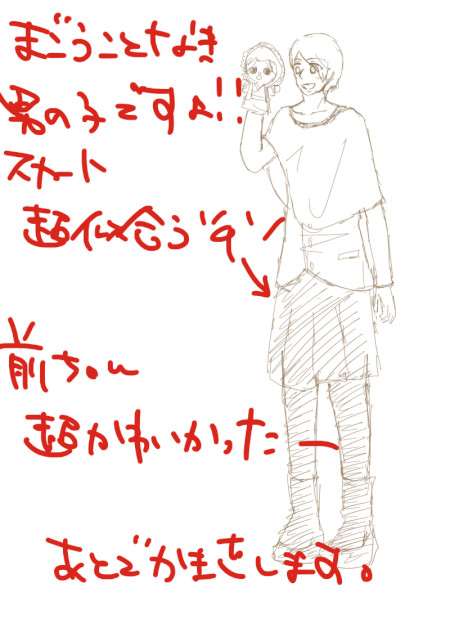 まごうことなき
男の子ですよ!!
スカート
超似合うッす
前ちゃん
超かわいかったー
あとでかきをします。